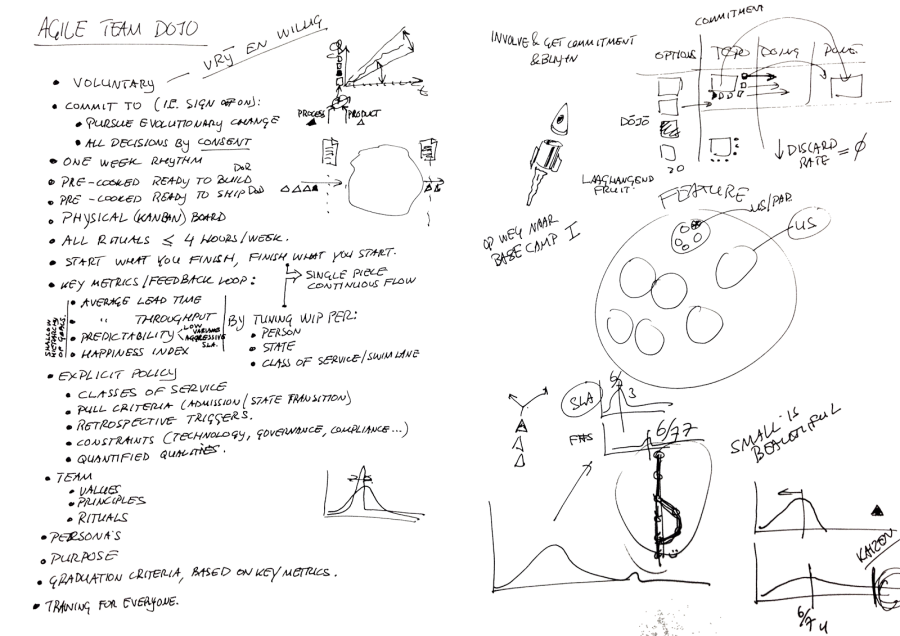 AGILE TEAM DOJO
VRIJ EN WILLIG
• VOLUNTARY
• COMMIT TO (I.E. SIGN OFF ON):
• PURSUE EVOLUTIONARY CHANGE
• ALL DECISIONS BY CONSENT
• ONE WEEK RHYTHM
• PRE-COOKED READY TO BUILD DOR
• PRE-COOKED READY TO SHIP DOD
• PHYSICAL (KANBAN) BOARD
• ALL RITUALS ≤ 4 HOURS/WEEK.
• START WHAT YOU FINISH, FINISH WHAT YOU START.
SINGLE PIECE
CONTINUOUS FLOW
• KEY METRICS/FEEDBACK LOOP:
SHALLOW
HIERARCHY
OF GOALS.
• AVERAGE LEAD TIME
• " THROUGHPUT
• PREDICTABILITY
LOW
VARIANCE
AGGRESSIVE
SLA.
• HAPPINESS INDEX
BY TUNING WIP PER:
• PERSON
• STATE
• CLASS OF SERVICE/SWIMLANE
• EXPLICIT POLICY
• CLASSES OF SERVICE
• PULL CRITERIA (ADMISSION/STATE TRANSITION)
• RETROSPECTIVE TRIGGERS.
• CONSTRAINTS (TECHNOLOGY, GOVERNANCE, COMPLIANCE...)
• QUANTIFIED QUALITIES.
• TEAM
• VALUES
• PRINCIPLES
• RITUALS
• PERSONA'S
• PURPOSE
• GRADUATION CRITERIA, BASED ON KEY METRICS.
• TRAINING FOR EVERYONE.
t
PROCESS
PRODUCT
INVOLVE & GET COMMITMENT
& BUY IN
COMMITMENT
OPTIONS
TODO
DOING
DONE
DOJO
20
↓ DISCARD
RATE = Ø
LAAGHANGEND
FRUIT.
OP WEG NAAR
BASE CAMP I
FEATURE
US/PAD
US
SLA
6/
3
6/77
SMALL IS
BEAUTIFUL
KAIZEN